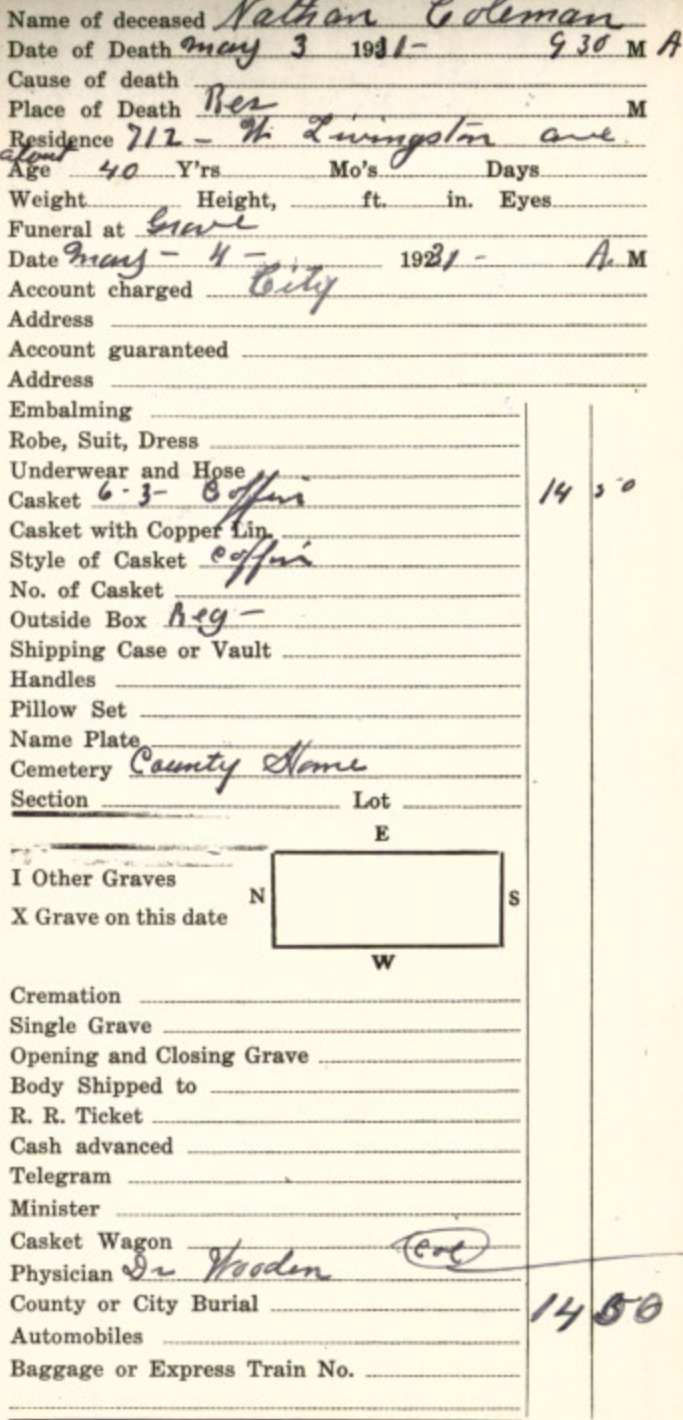 Name of deceased Nathan Coleman
Date of Death May 3 1931- 9 30 M A
Cause of death
Place of Death Res M
Residence 712 - W. Livingston ave
about
Age 40 Y'rs Mo's Days
Weight Height, ft. in. Eyes
Funeral at Grave
Date May - 4 - 1931 - A. M
Account charged City
Address
Account guaranteed
Address
Embalming
Robe, Suit, Dress
Underwear and Hose
Casket 6-3- Coffin 14 50
Casket with Copper Lin.
Style of Casket Coffin
No. of Casket
Outside Box Reg -
Shipping Case or Vault
Handles
Pillow Set
Name Plate
Cemetery County Home
Section Lot
E
I Other Graves
N S
X Grave on this date
W
Cremation
Single Grave
Opening and Closing Grave
Body Shipped to
R. R. Ticket
Cash advanced
Telegram
Minister
Casket Wagon Col
Physician Dr Wooden
County or City Burial 14 50
Automobiles
Baggage or Express Train No.